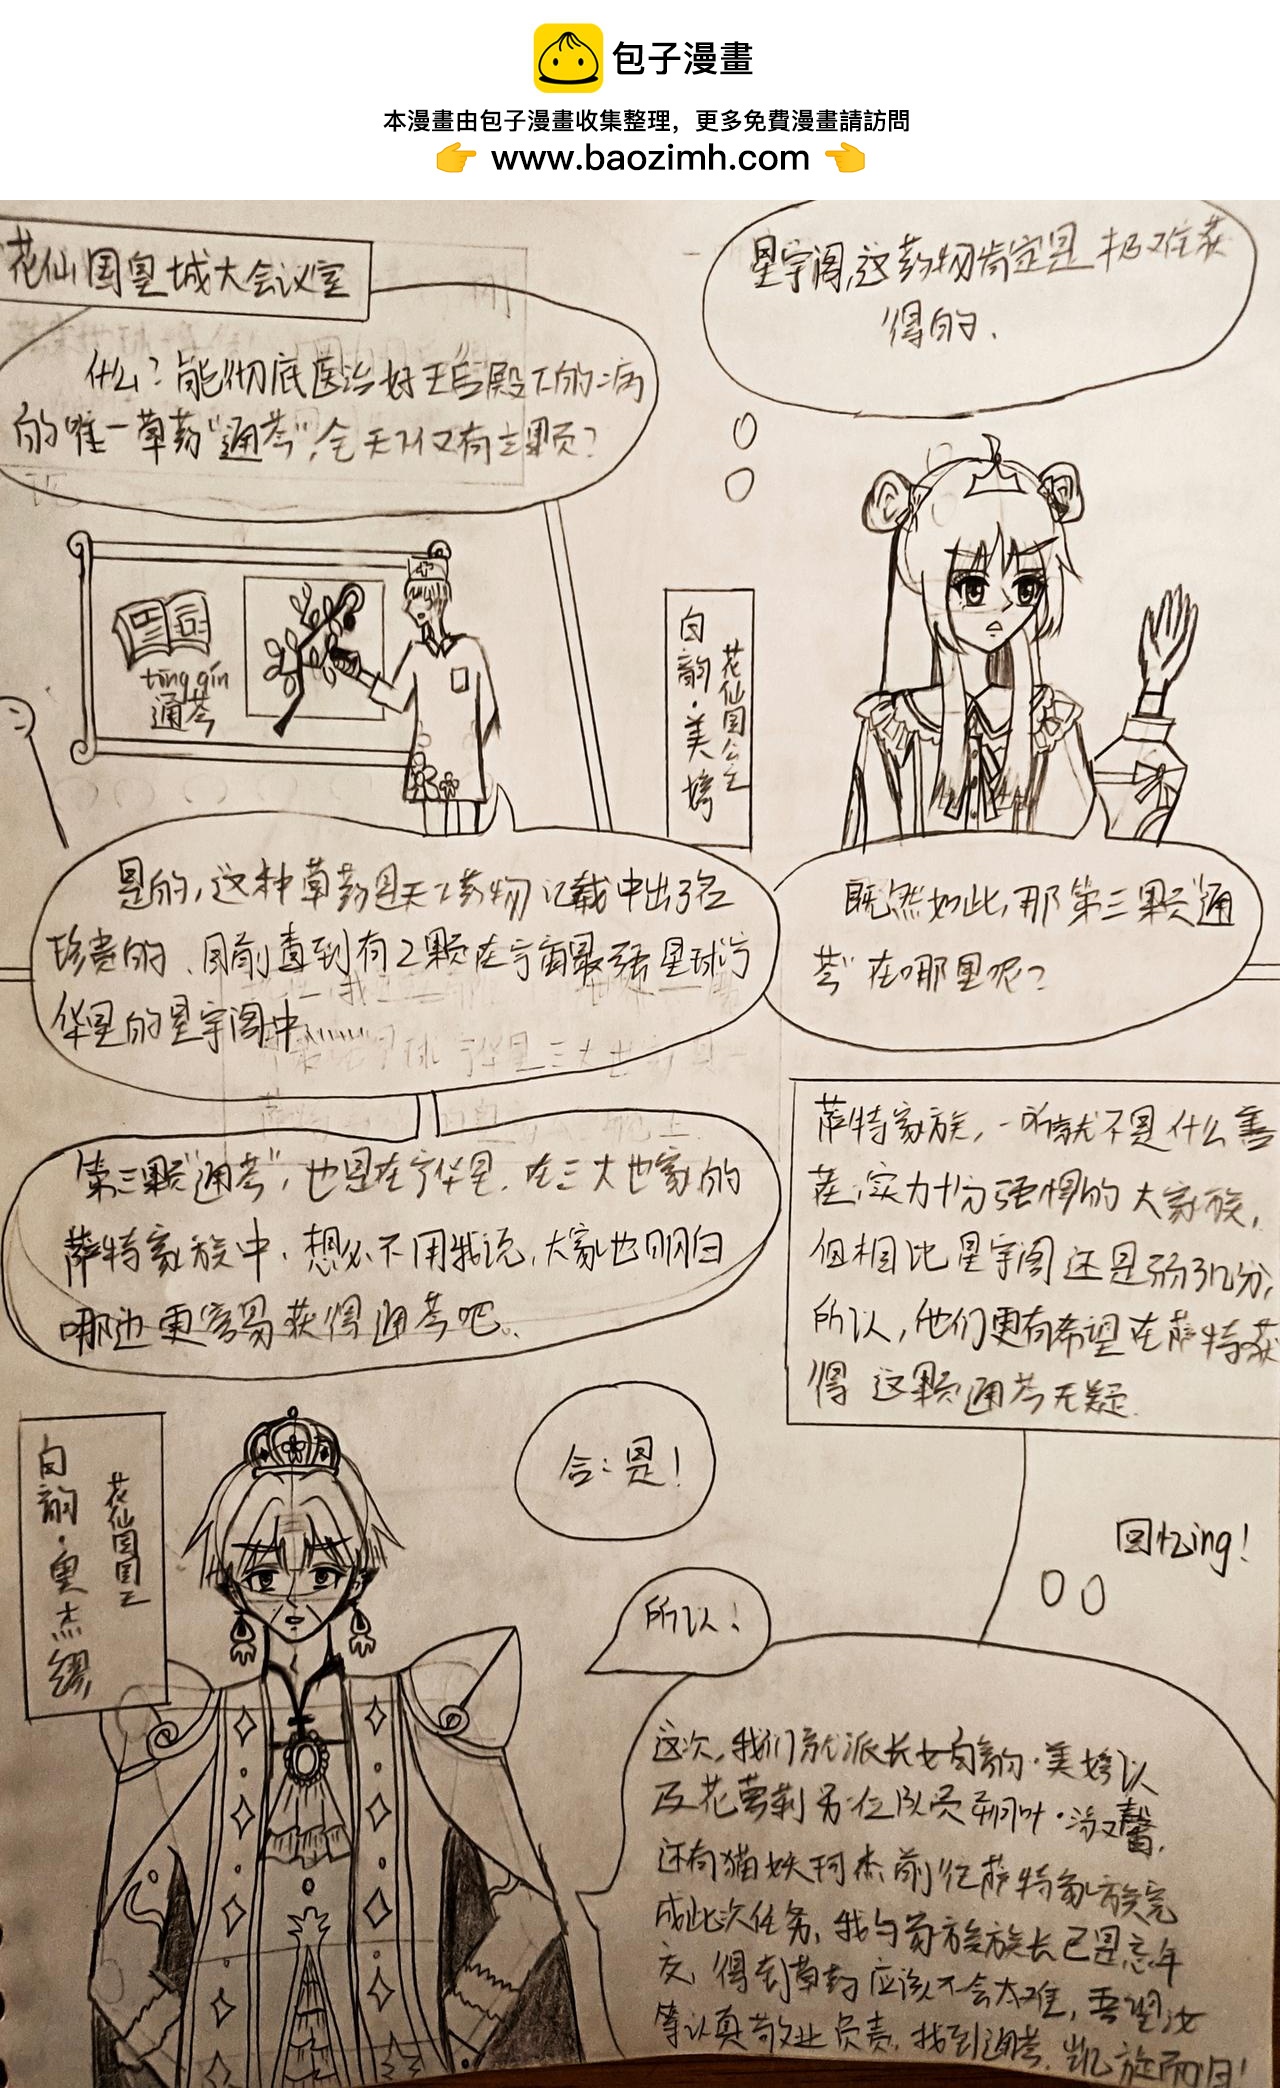 包子漫畫
本漫畫由包子漫畫收集整理，更多免費漫畫請訪問
www.baozimh.com
花仙国皇城大会议室
什么？能彻底医治好王后殿下的病
的唯一草药“通芩”，全天下仅有三颗？
星宇阁，这药物肯定是极难获
得的．
tōng qín
通芩
花仙国公主
白韵·美婷
是的，这种草药是天下药物记载中出了名
珍贵的、目前查到有2颗在宇宙最强星球宁
华星的星宇阁中
既然如此，那第三颗“通
芩”在哪里呢？
第三颗“通芩”，也是在宁华星．在三大世家的
萨特家族中．想必不用我说，大家也明白
哪边更容易获得通芩吧．
萨特家族，一听就不是什么善
茬，实力十分强悍的大家族，
但相比星宇阁还是弱了几分，
所以，他们更有希望在萨特获
得这颗通芩无疑．
花仙国国王
白韵·奥杰
合：是！
回忆ing！
所以！
这次，我们就派长女白韵·美婷以
及花萝莉另一位队员 叶·汤 馨，
还有猫妖珂杰前往萨特家族完
成此次任务，我与 家族族长已是忘年
交，得到草药应该不会太难，吾望汝
等认真敬业负责，找到通芩．凯旋而归！